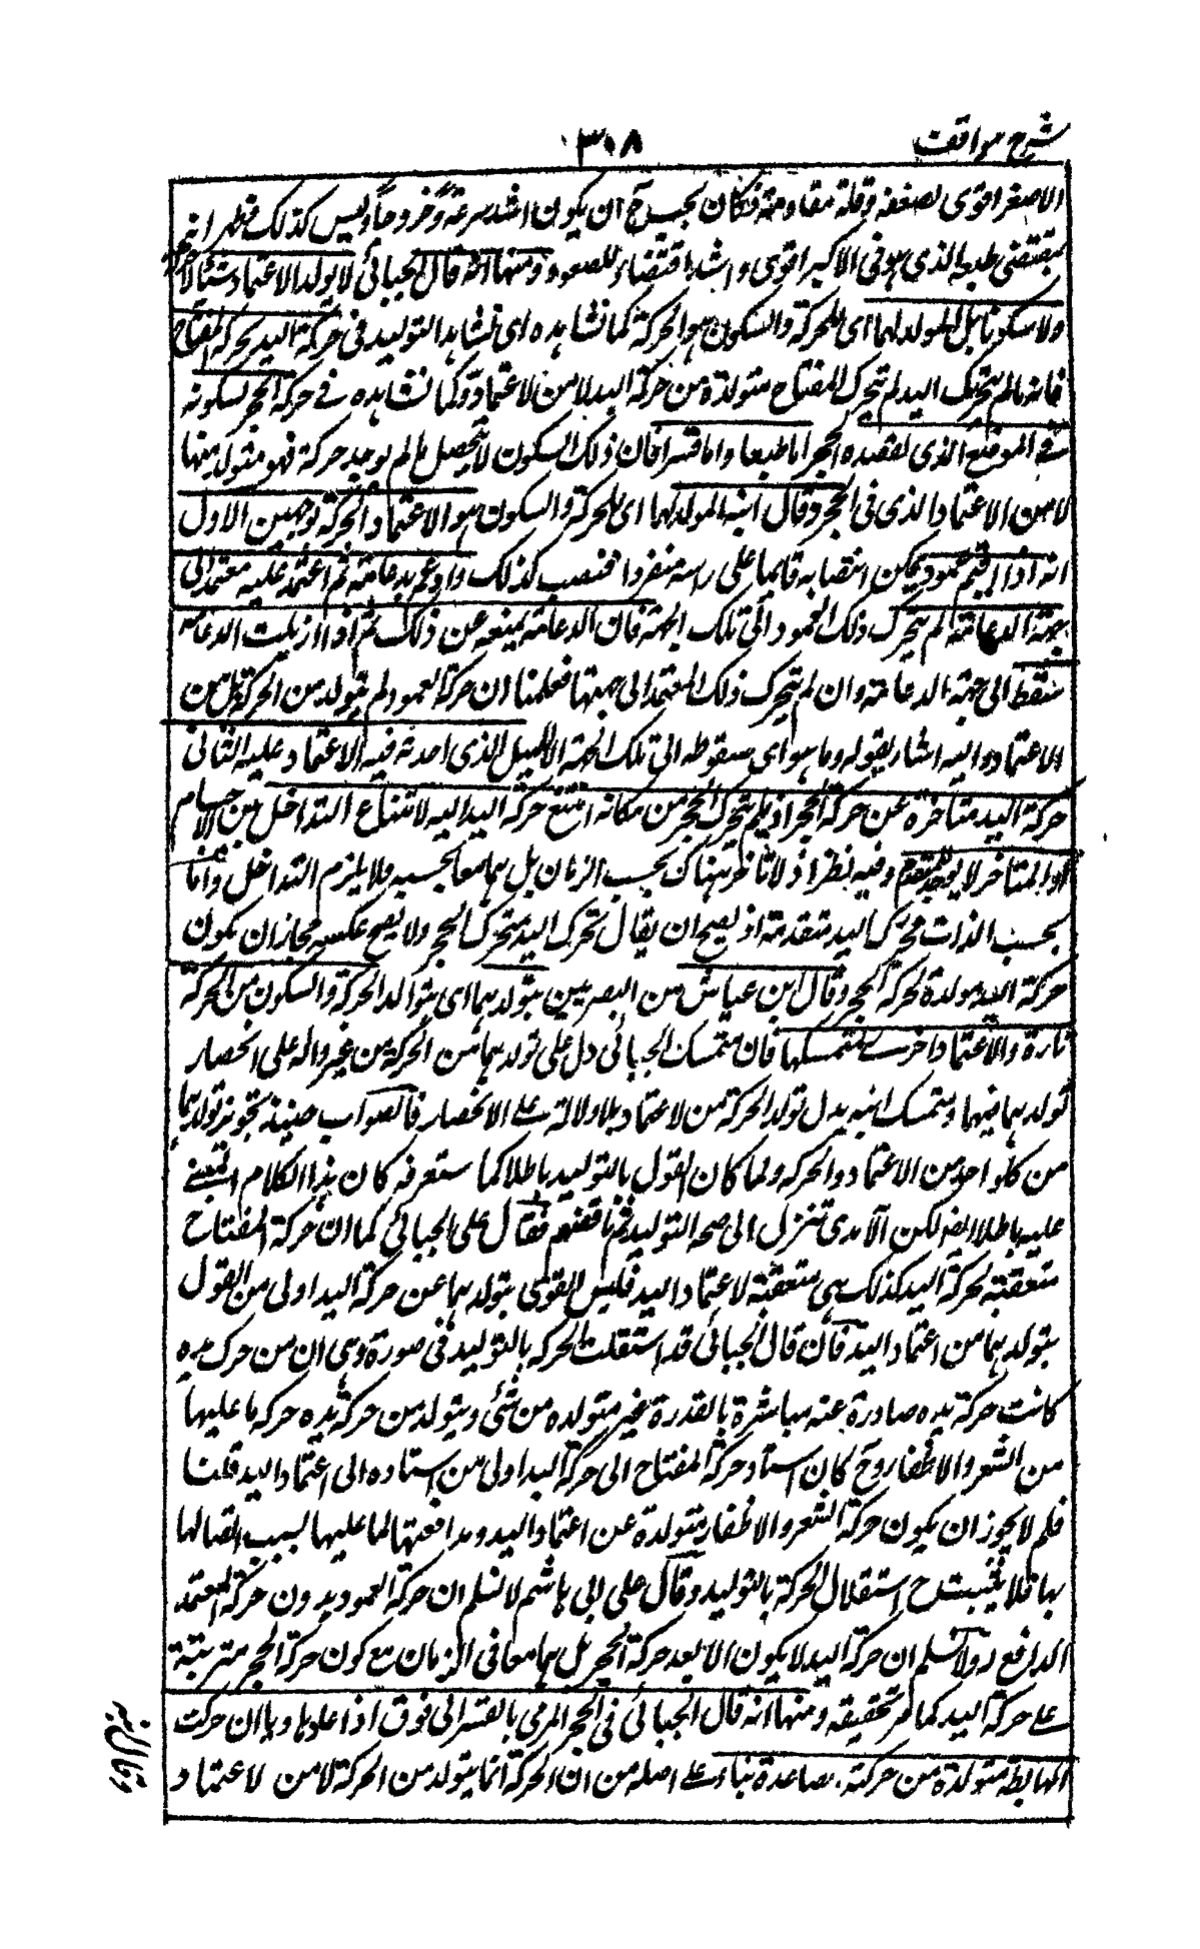 شرح مواقف
٣٠٨
الاصغر اقوى لضعفه وقلة مقاومته فكان يجب ح ان يكون اشد سرعة وخروجا وليس كذلك فظهر انه
بمقتضى طبعه الذى هو فى الاكبر اقوى واشد اقتضاء للصعود ومنها انه قال الجبائى لا يولد الاعتماد شيئا لا حركة
ولا سكونا بل المولد لهما اى للحركة والسكون هو الحركة كما نشاهده اى نشاهد التوليد فى حركة اليد بحركة المفتاح
فانه مالم يتحرك اليد لم يتحرك المفتاح متولدة من حركة اليد لا من الاعتماد وكما نشاهده فے حركة الحجر لسكونه
فے الموضع الذى يقصده الحجر اما طبعا واما قسرا فان ذلك السكون لا يحصل مالم يوجد حركة فهو متولد منها
لا من الاعتماد الذى فى الحجر وقال ابنه المولد لهما اى للحركة والسكون هو الاعتماد لا الحركة لوجهين الاول
انه اذا اقيم عمود يمكن انتصابه قائما على راسه منفردا فنصب كذلك وادعم بدعامة ثم اعتمد عليه معتمد الى
جهة الدعامة لم يتحرك ذلك العمود الى تلك الجهة فان الدعامة يمنعه عن ذلك ثم اذا ازيلت الدعامة
سقط الى جهة الدعامة وان لم يتحرك ذلك المعتمد الى جهتها فعلمنا ان حركة العمود لم يتولد من الحركة بل من
الاعتماد واليه اشار بقوله وما هو اى سقوطه الى تلك الجهة الا للميل الذى احدثه فيه الاعتماد عليه الثانى
حركة اليد متاخرة عن حركة الحجر اذ مالم يتحرك الحجر من مكانه امتنع حركة اليد اليه لامتناع التداخل بين الاجسام
والمتاخر لا يولد المتقدم وفيه نظر اذ لا تاخر هناك بحسب الزمان بل هما معا بحسبه فلا يلزم التداخل واما
بحسب الذات فحركة اليد متقدمة اذ يصح ان يقال تحرك اليد فتحرك الحجر ولا يصح عكسه فجاز ان يكون
حركة اليد مولدة لحركة الحجر وقال ابن عياش من البصريين بتولدهما اى بتوالد الحركة والسكون من الحركة
تارة والاعتماد اخرے لتمسكهما فان متمسك الجبائى دل على تولدهما من الحركة من غير دلالة على انحصار
تولدهما فيها ومتمسك ابنه يدل تولد الحركة من لاعتماد بلا دلالة على الانحصار فالصواب حينئذ تجويز تولدهما
من كلواحد من الاعتماد والحركة ولما كان القول بالتوليد باطلا كما ستعرفه كان هذا الكلام المبنے
عليه باطلا ايضا لكن الآمدى تنزل الى صحة التوليد ثم ناقضهم فقال على الجبائى كما ان حركة المفتاح
متعقبة لحركة اليد كذلك هى متعقبة لاعتماد اليد فليس القول بتولدهما عن حركة اليد اولى من القول
بتولدهما من اعتماد اليد فان قال الجبائى قد استقلت الحركة بالتوليد فى صورة وهى ان من حرك يده
كانت حركة يده صادرة عنه مباشرة بالقدرة غير متولده من شئ ويتولد من حركة يده حركة ما عليها
من الشعر والاظفار وح كان اسناد حركة المفتاح الى حركة اليد اولى من اسناده الى اعتماد اليد قلنا
فلم لا يجوز ان يكون حركة الشعر والاظفار متولدة عن اعتماد اليد ومدافعتها لما عليها بسبب اتصالها
بها فلا يثبت ح استقلال الحركة بالتوليد وقال على ابى هاشم لا نسلم ان حركة العمود بدون حركة المعتمد
الدافع له ولا نسلم ان حركة اليد لا يكون الا بعد حركة الحجر بل هما معا فى الزمان مع كون حركة الحجر مترتبة
على حركة اليد كما مر تحقيقه ومنها انه قال الجبائى فى الحجر المرمى بالقسر الى فوق اذا عاد هاويا ان حركته
الهابطة متولدة من حركته الصاعدة بناء على اصله من ان الحركة انما يتولد من الحركة لا من لاعتماد